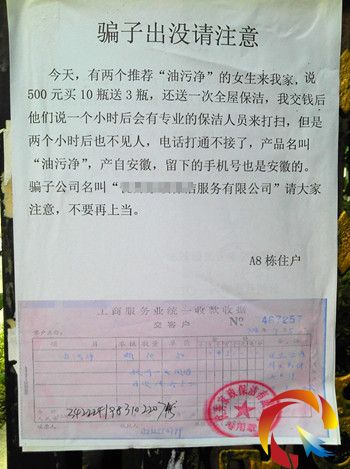 骗子出没请注意
今天，有两个推荐“油污净”的女生来我家，说
500元买10瓶送3瓶，还送一次全屋保洁，我交钱后
他们说一个小时后会有专业的保洁人员来打扫，但是
两个小时后也不见人，电话打通不接了，产品名叫
“油污净”，产自安徽，留下的手机号也是安徽的。
骗子公司名叫“洁服务有限公司”请大家
注意，不要再上当。
A8栋住户
工商服务业统一收款收据
交客户 № 467257